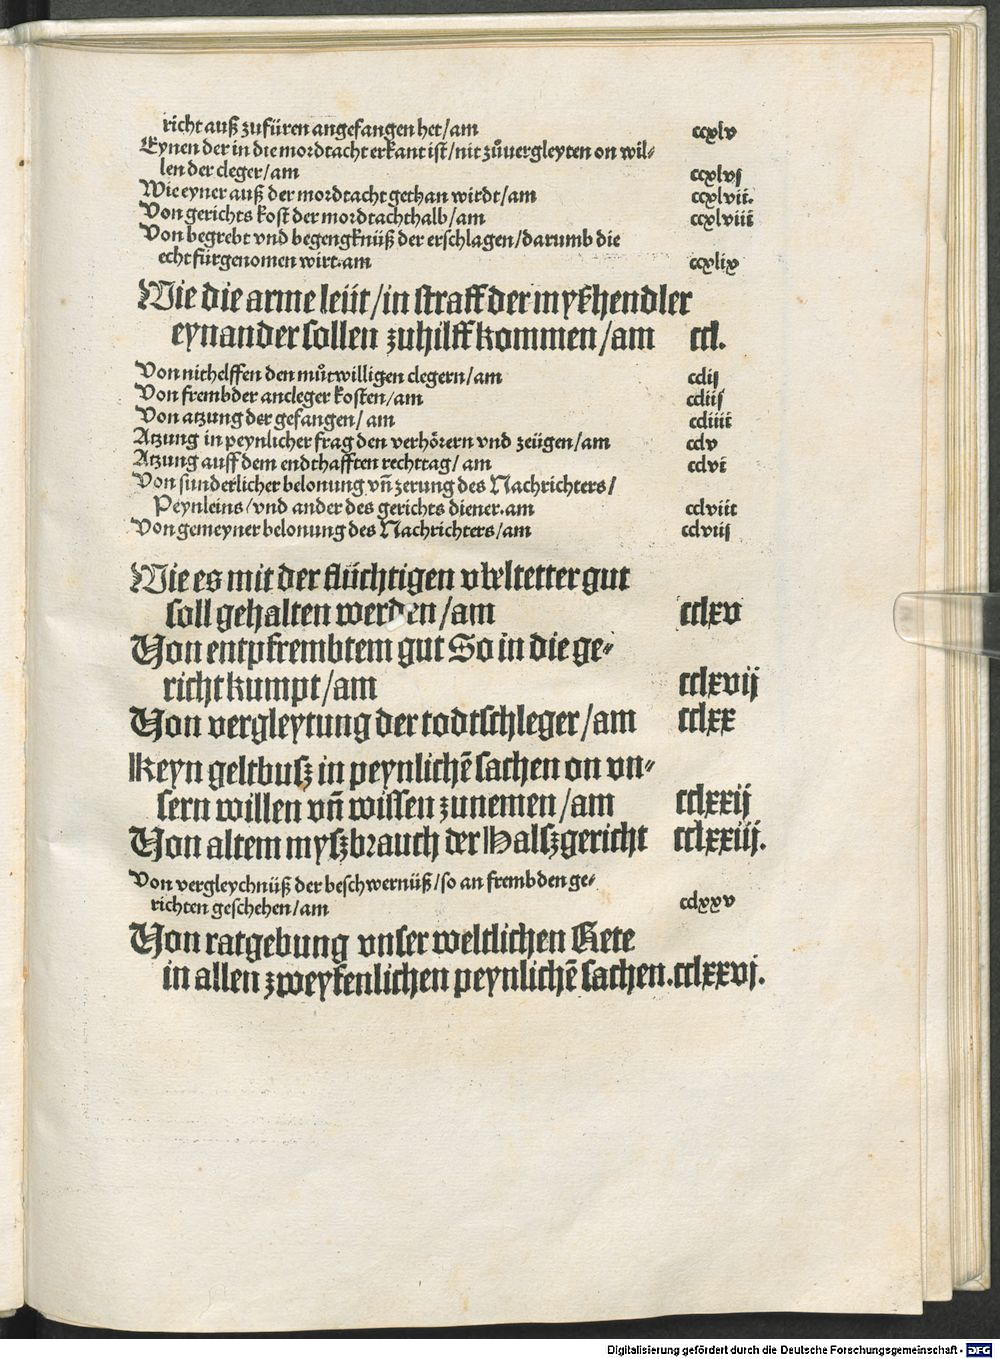 richt auß zufüren angefangen het/am ccxlv
Eynen der in die mordtacht erkant ist/nit zůuergleyten on wil⸗
len der cleger/am ccxlvj
Wie eyner auß der mordtacht gethan wirdt/am ccxlvii.
Von gerichts kost der mordtachthalb/am ccxlviii
Von begrebt vnd begengknüß der erschlagen/darumb die
echt fürgenomen wirt.am ccxlix
Wie die arme leüt/in straff der myßhendler
eynander sollen zuhilff kommen/am ccl.
Von nithelffen den můtwilligen clegern/am cclij
Von frembder ancleger kosten/am ccliij
Von atzung der gefangen/am ccliiii
Atzung in peynlicher frag den verhörern vnd zeügen/am cclv
Atzung auff dem endthafften rechttag/am cclvi
Von sunderlicher belonung vñ zerung des Nachrichters/
Peynleins/vnd ander des gerichts diener.am cclviii
Von gemeyner belonung des Nachrichters/am cclviij
Wie es mit der flüchtigen vbeltetter gut
soll gehalten werden/am cclxv
Von entpfrembtem gut So in die ge⸗
richt kumpt/am cclxvij
Von vergleytung der todtschleger/am cclxx
Keyn geltbusz in peynlichē sachen on vn⸗
sern willen vñ wissen zunemen/am cclxxij
Von altem myszbrauch der Halszgericht cclxxiij.
Von vergleychnüß der beschwernüß/so an frembden ge⸗
richten geschehen/am cclxxv
Von ratgebung vnser weltlichen Rete
in allen zweyfenlichen peynlichē sachen.cclxxvj.
Digitalisierung gefördert durch die Deutsche Forschungsgemeinschaft - DFG